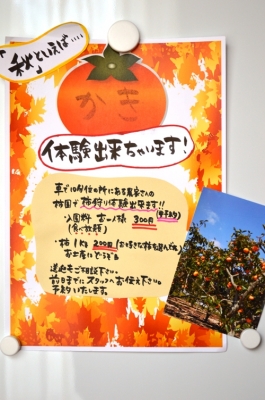 "秋"といえば‥‥
かき
体験出来ちゃいます!
車で10分位の所にある農家さんの
柿園で柿狩り体験出来ます!!
・入園料 お一人様 300円
(食べ放題)
・柿 1kg 200円(お好きな柿を選んで
お土産にどうぞ
送迎もご相談下さい。
前日までにスタッフへお伝え下さい。
予約いたします。